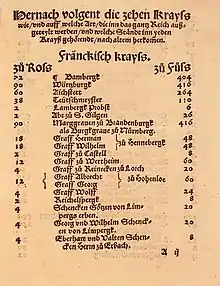 Hernach volgent die zehen Krayß
wie/und auff welche Art/ die inn das gantz Reich auß=
geteylt werden/ und welche Ständ inn yeden
Krayß gehörende/ nach altem herkomen.
Fränckisch krayß.
Zů Roß Zů Füß
72 ¶ Bambergk 404
30 Würtzburgk 160
60 Aichstett 264
38 Teütschmeyster 110
2 Lambergk Probst 6
2 Abt zů S. Gilgen 26
90 Marggrauen zů Brandenburgk
als Burgkgraue zů Nürmberg.
18 Graff Herman 48
18 Graff Wilhelm } zů Hennebergk 48
2 Graff zů Castell 8
12 Graff zů Wertheim 60
4 Graff zů Reinecken zů Lorch 20
12 Graff Albrecht } zů Hohenloe 60
12 Graff Georg
4 Graff Wolff 24
2 Reichelspergk 8
4 Schencken Götzen von Lim=
purgs erben. 20
4 Georg und Wilhelm Schenck=
en von Limpergk. 20
4 Eberhart und Valten Schen=
cken Herrn zů Erbach. 20
A ij